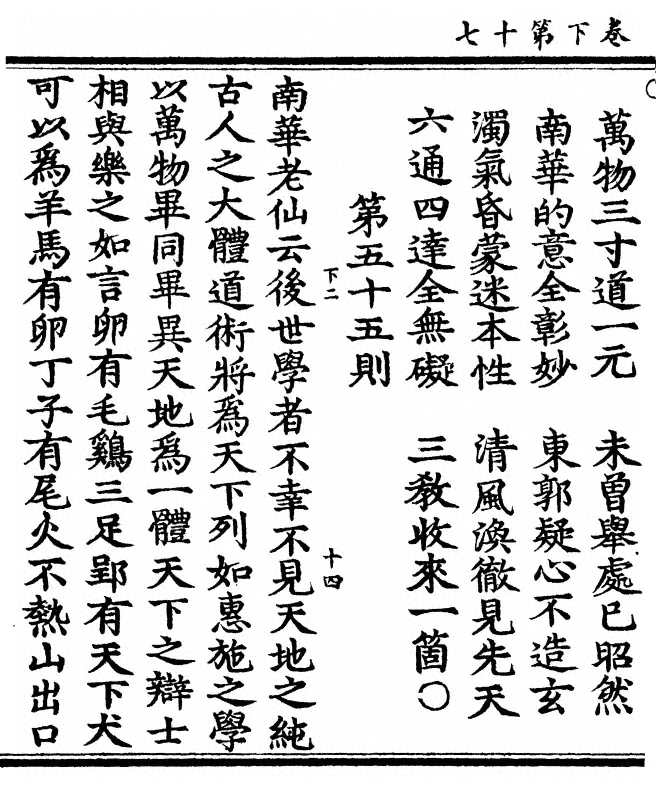 卷下第十七
萬物三寸道一元　未曾舉處已昭然
南華的意全彰妙　東郭疑心不造玄
濁氣昏蒙迷本性　清風渙徹見先天
六通四達全無礙　三教收來一箇〇
第五十五則
下二
十四
南華老仙云後世學者不幸不見天地之純
古人之大體道術將爲天下列如惠施之學
以萬物畢同畢異天地爲一體天下之辯士
相與樂之如言卵有毛鷄三足郢有天下犬
可以爲羊馬有卵丁子有尾火不熱山出口